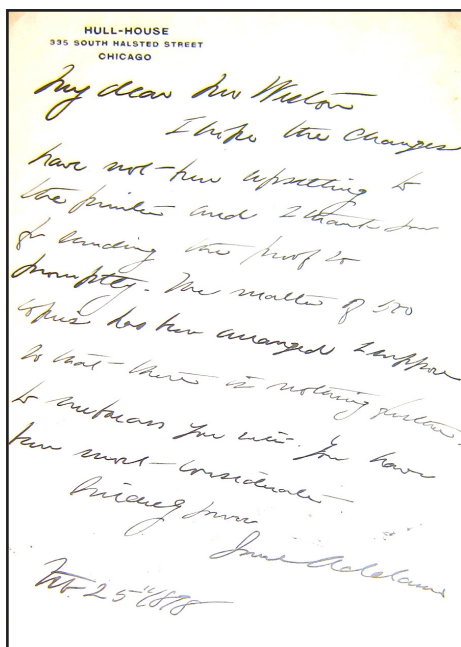 HULL-HOUSE
335 SOUTH HALSTED STREET
CHICAGO
My dear Mr Weston
I hope the changes
have not been upsetting to
the printer and I thank you
for sending the proof so
promptly. The matter of 500
copies has been arranged I suppose
so that there is nothing further
to embarrass you with. You have
been most considerate
Sincerely yours
Jane Addams
Feb. 25" 1898